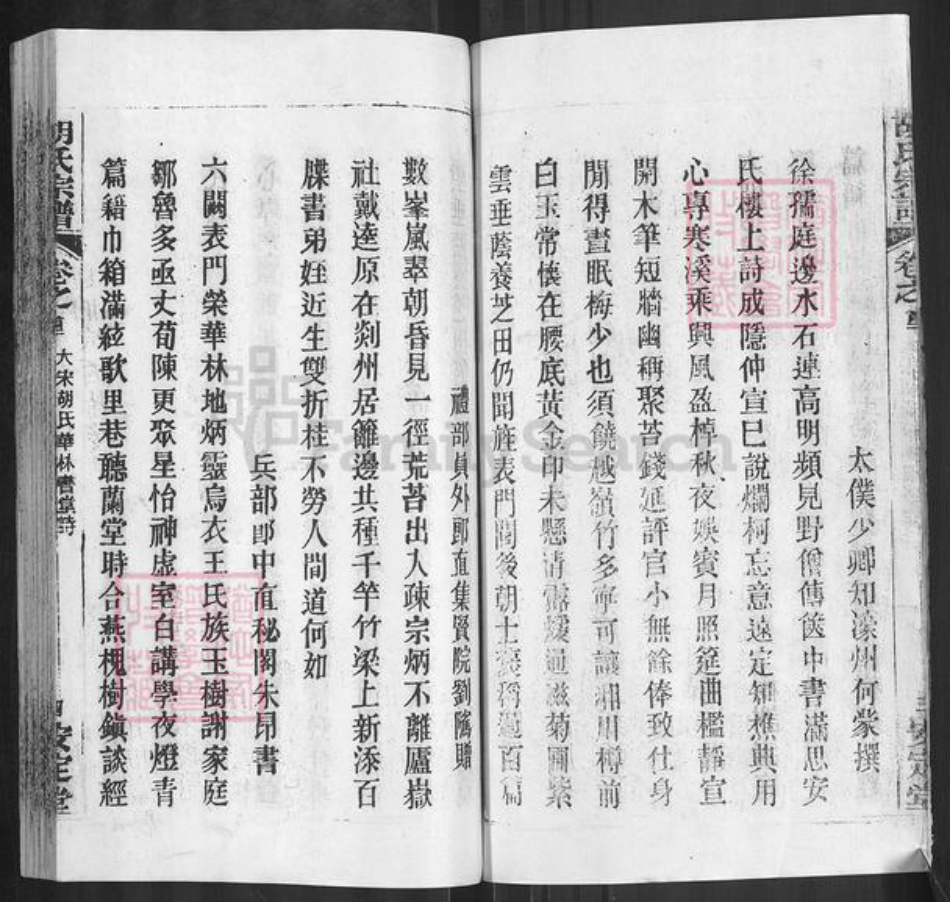 太僕少卿知濠州何蒙撰
徐孺庭邊水石連高明頻見野僧傳篋中書滿思安
氏樓上詩成隱仲宣巳說爛柯忘意遠定知樵典用
心專寒溪乘興風盈棹秋夜娛賓月照筵曲檻靜宣
開木筆短牆幽稱聚苔錢延評官小無餘俸致仕身
閒得晝眠梅少也須饒越嶺竹多寧可讓湘川樽前
白玉常懷在腰底黃金印未懸清露煖通滋菊圃紫
雲垂蔭養芝田仍聞旌表門閭後朝士褒稱過百篇
禮部員外郎直集賢院劉隲贈
數峯嵐翠朝昏見一徑荒苔出入疎宗炳不離廬嶽
社戴逵原在剡州居籬邊共種千竿竹梁上新添百
牒書弟姪近生雙折桂不勞人間道何如
兵部郎中直秘閣朱昂書
六闕表門榮華林地炳靈烏衣王氏族玉樹謝家庭
鄒魯多函丈荀陳更聚星怡神虛室白講學夜燈青
篇籍巾箱滿絃歌里巷聽蘭堂時合燕槐樹鎮談經
胡氏宗譜
卷之
大宋胡氏華林書堂詩
四
安定堂
胡氏宗譜
卷之
三
安定堂
FamilySearch